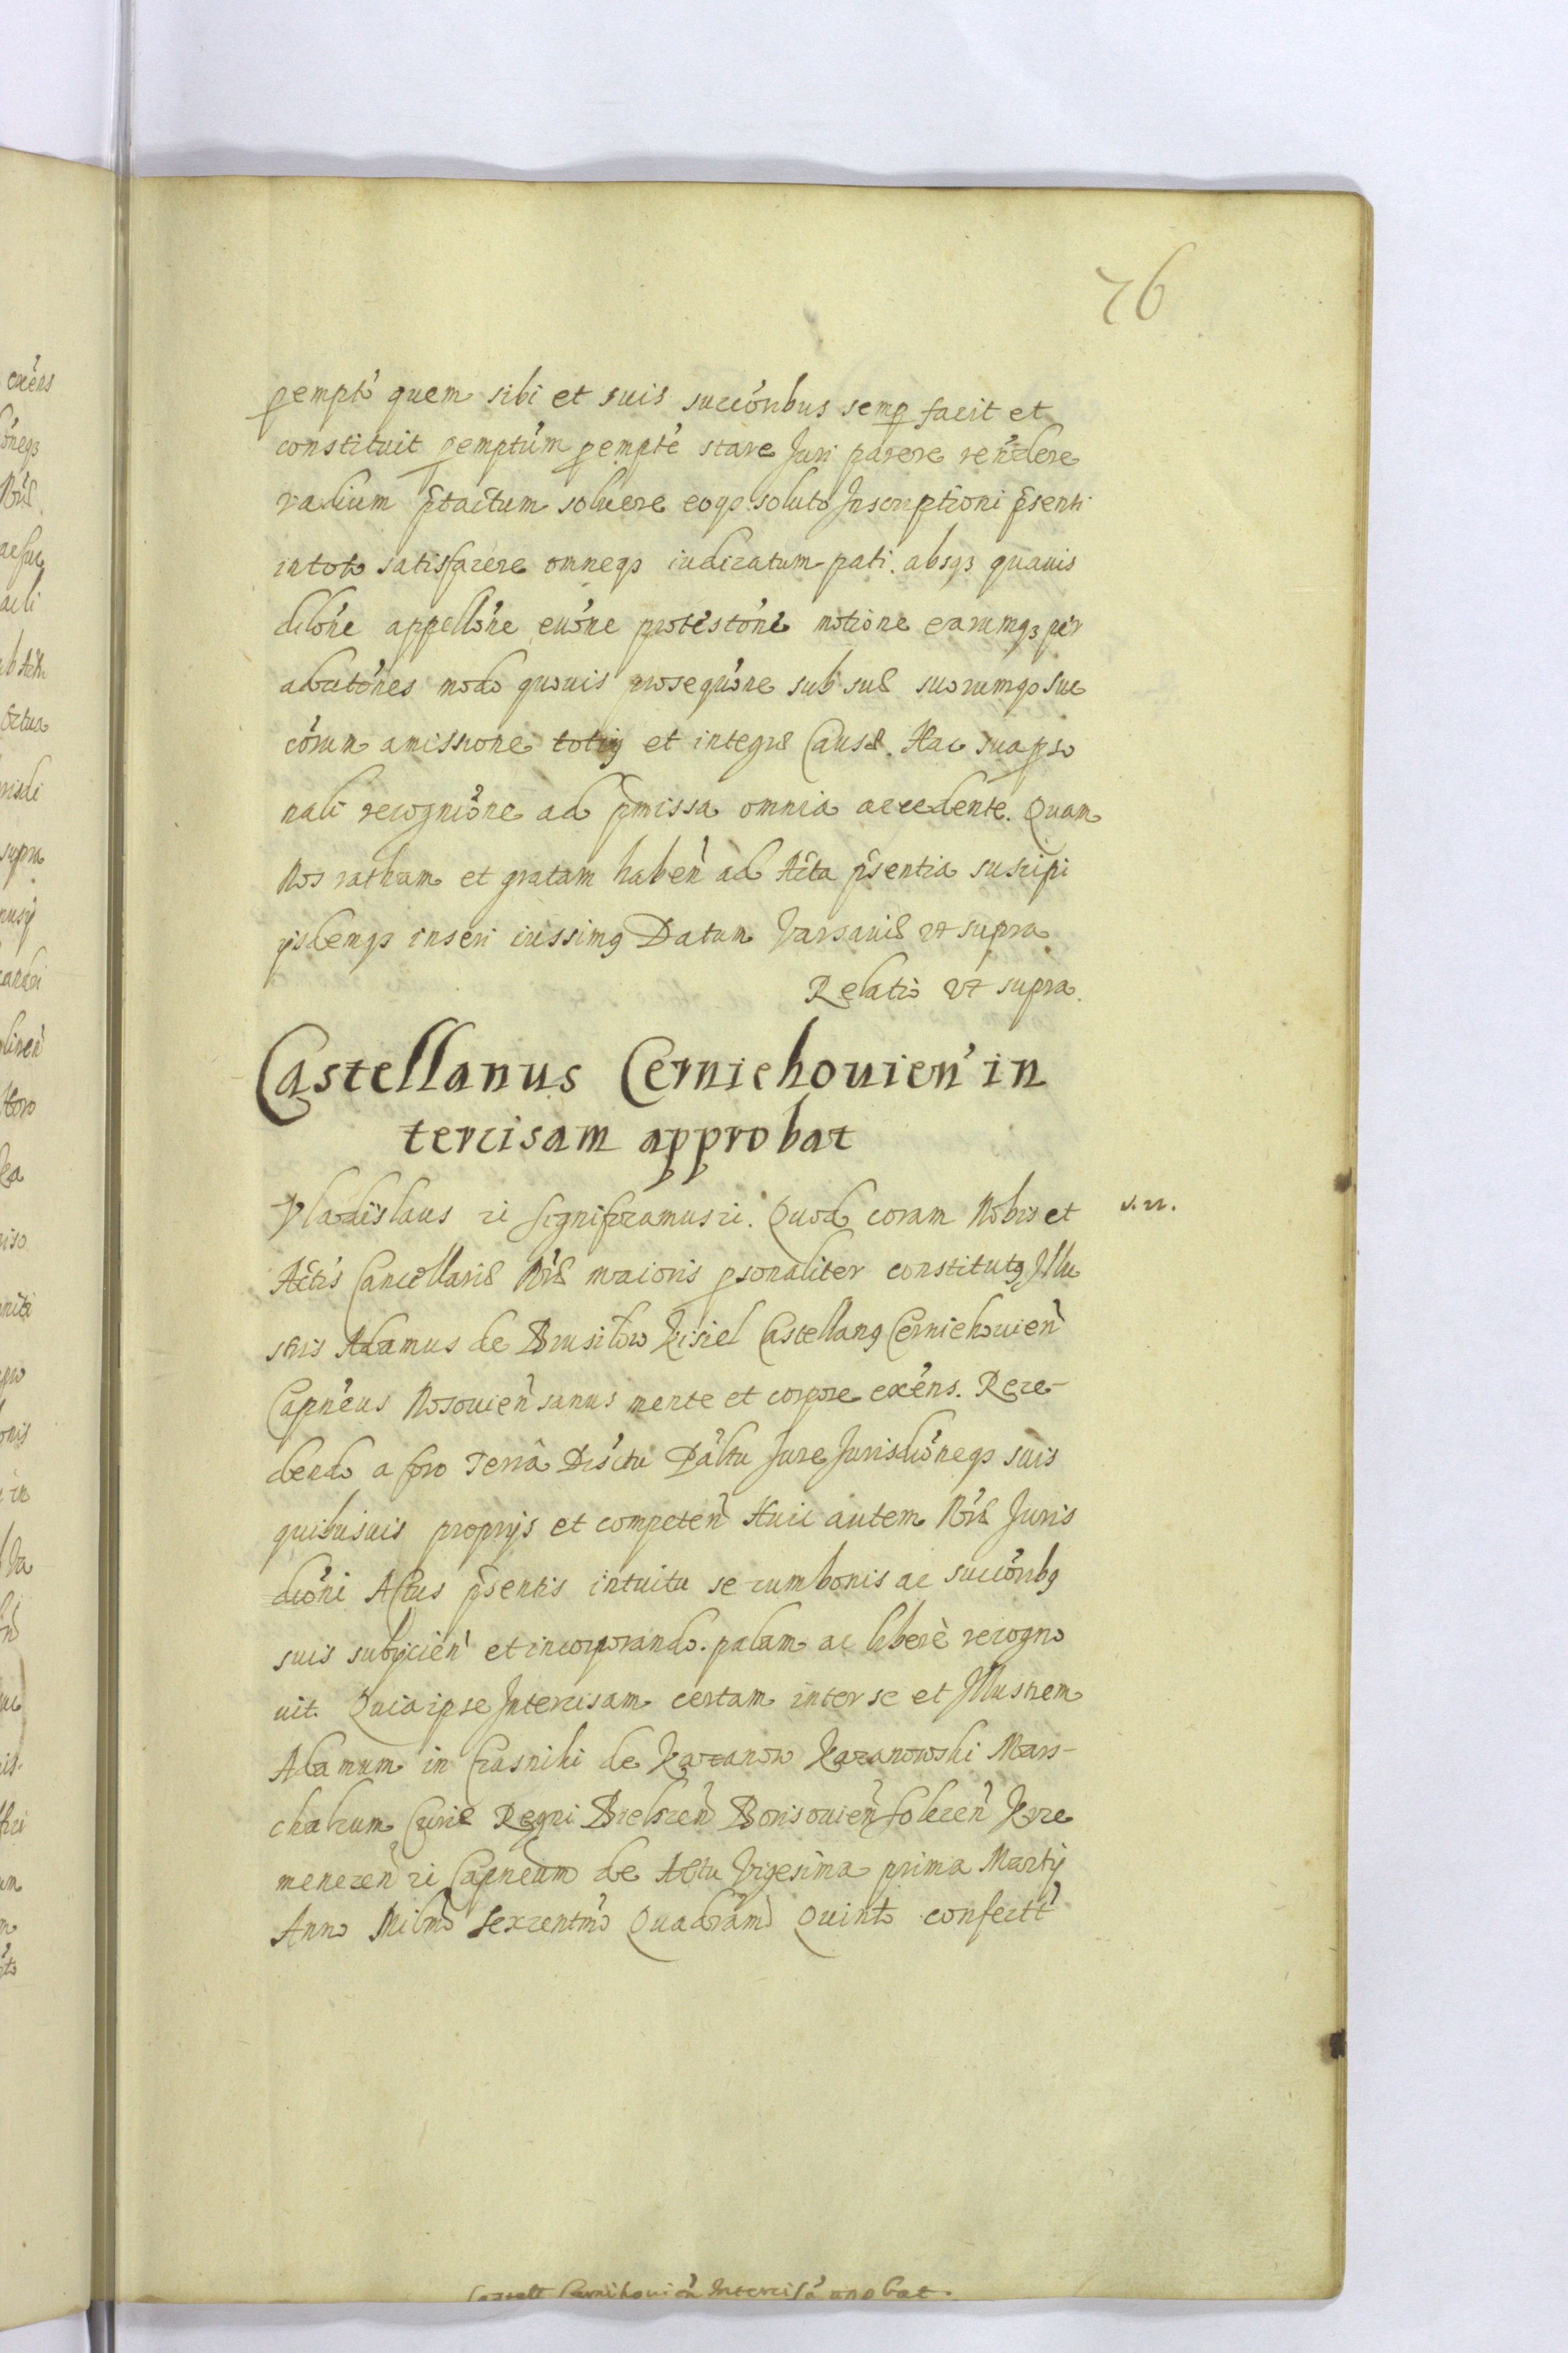 76
pempto quem sibi et suis succoribus semp facit et
constituit pemptum pempte stare Juri parere rendere
vadium ptactum soluere eoqz soluto Inscriptioni psenti
in toto satisfacere omneqz iudicatum pati. absqz quavis
dilone appellone euone protestone motione earumqz per
aductones modo quovis prosequone sub sua suorumqz suc
corum amissione totiq et integra Causa. Hac sua pso
nali recognione ad pmissa omnia accedente. Quam
Nos ratham et gratam haben ad Acta psentia suscipi
ijsdemqz inseri iussimq Datum Varsaviæ vt supra
Relatio vt supra.
Castellanus Cerniehouien in
tercisam approbat
Vladislaus rc significamus rc. Quod coram Nobis et
s. n.
Actis Cancellariæ Nræ maioris psonaliter constitutq Illu
stris Adamus de Brusilow Kisiel Castellanq Cerniehouien
Capneus Nosouien sanus mente et corpore exens. Rece-
dendo a foro Terra Disctu Paltu Jure Jurisdioneqz suis
quibusuis proprijs et competen Huic autem Nræ Juris
dioni Actus psentis intuitu se cum bonis ac succoribq
suis subijcien et incorporando. palam ac libere recogno
uit. Quia ipse Intercisam certam inter se et Illustrem
Adamum in Crasniki de Kazanow Kazanowski Mars-
chalcum Curiæ Regni Bielscen Borisouien Solecen Krze
menecen rc Capneum de Actu Vigesima prima Martij
Anno Milmo Sexcentmo Quadramo Quinto confectt
Castell Cernihouien Intercisa apobat.